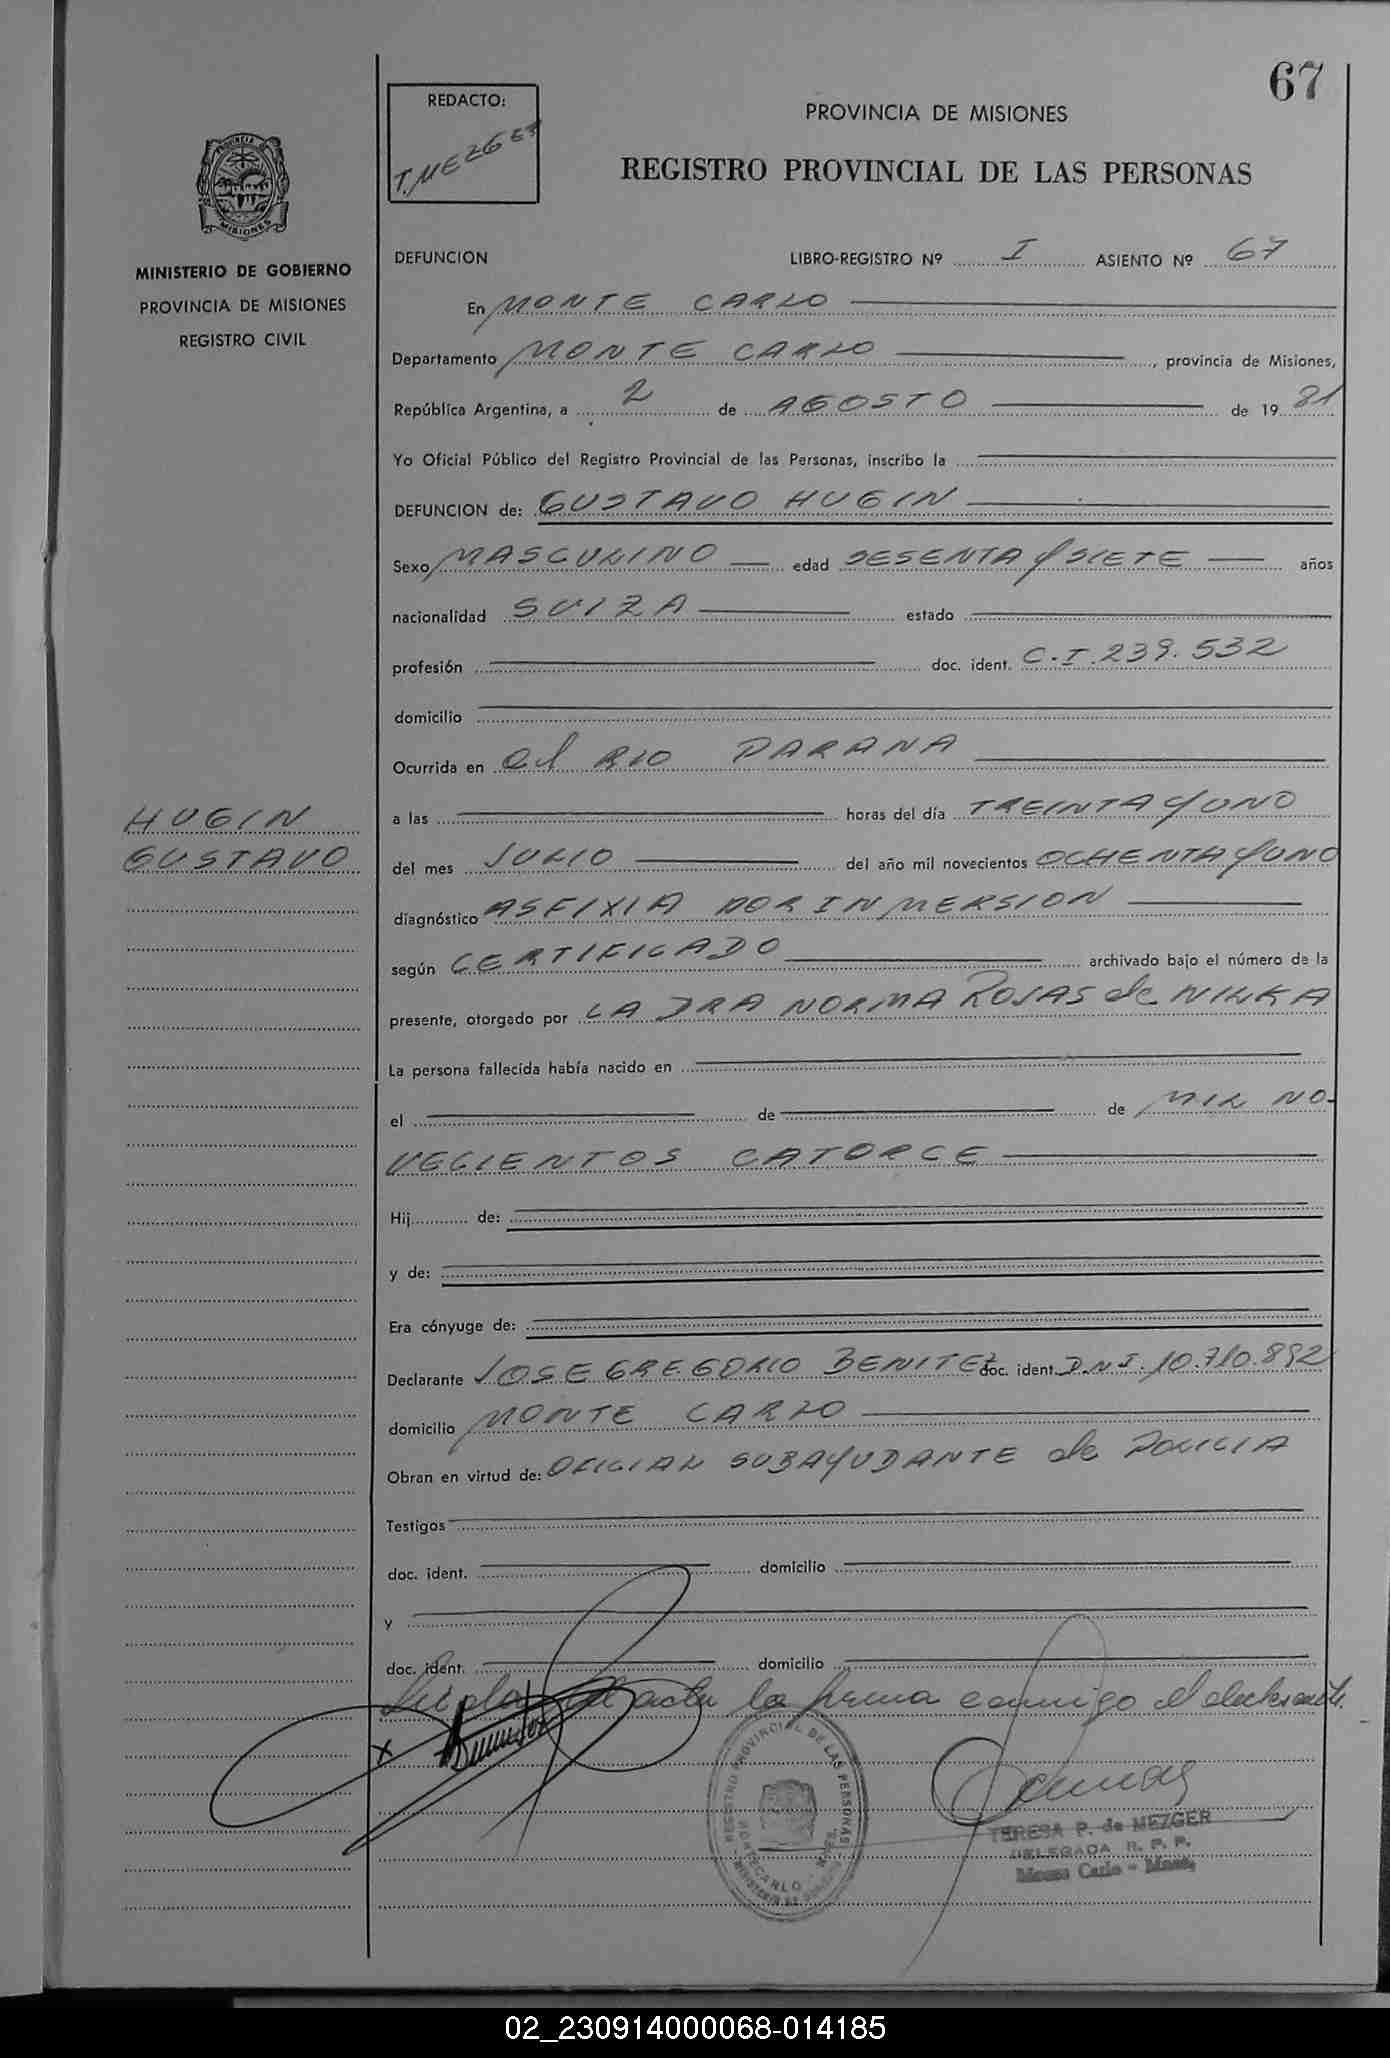 67
REDACTO:
T. MEZGER
PROVINCIA DE MISIONES
REGISTRO PROVINCIAL DE LAS PERSONAS
MISIONES
MINISTERIO DE GOBIERNO
PROVINCIA DE MISIONES
REGISTRO CIVIL
DEFUNCION LIBRO-REGISTRO Nº I ASIENTO Nº 67
En MONTE CARLO
Departamento MONTE CARLO, provincia de Misiones,
República Argentina, a 2 de AGOSTO de 19 81
Yo Oficial Público del Registro Provincial de las Personas, inscribo la
DEFUNCION de: GUSTAVO HUGIN
Sexo MASCULINO edad SESENTA y SIETE años
nacionalidad SUIZA estado
profesión doc. ident. C.I. 239.532
domicilio
Ocurrida en el RIO PARANA
HUGIN
GUSTAVO
a las horas del día TREINTA y UNO
del mes JULIO del año mil novecientos OCHENTA y UNO
diagnóstico ASFIXIA POR INMERSION
según CERTIFICADO archivado bajo el número de la
presente, otorgado por LA DRA NORMA ROJAS de NILKA
La persona fallecida había nacido en
el de de MIL NO-
VECIENTOS CATORCE
Hij de:
y de:
Era cónyuge de:
Declarante JOSE GREGORIO BENITEZ doc. ident. D.N.I. 10.710.892
domicilio MONTE CARLO
Obran en virtud de: OFICIAL SUBAYUDANTE de POLICIA
Testigos
doc. ident. domicilio
y
doc. ident. domicilio
el acta la firma conmigo el declarante.
x
REGISTRO PROVINCIAL DE LAS PERSONAS
MONTECARLO
TERESA P. de MEZGER
DELEGADA R. P. P.
Monte Carlo - Mnes.
02_230914000068-014185